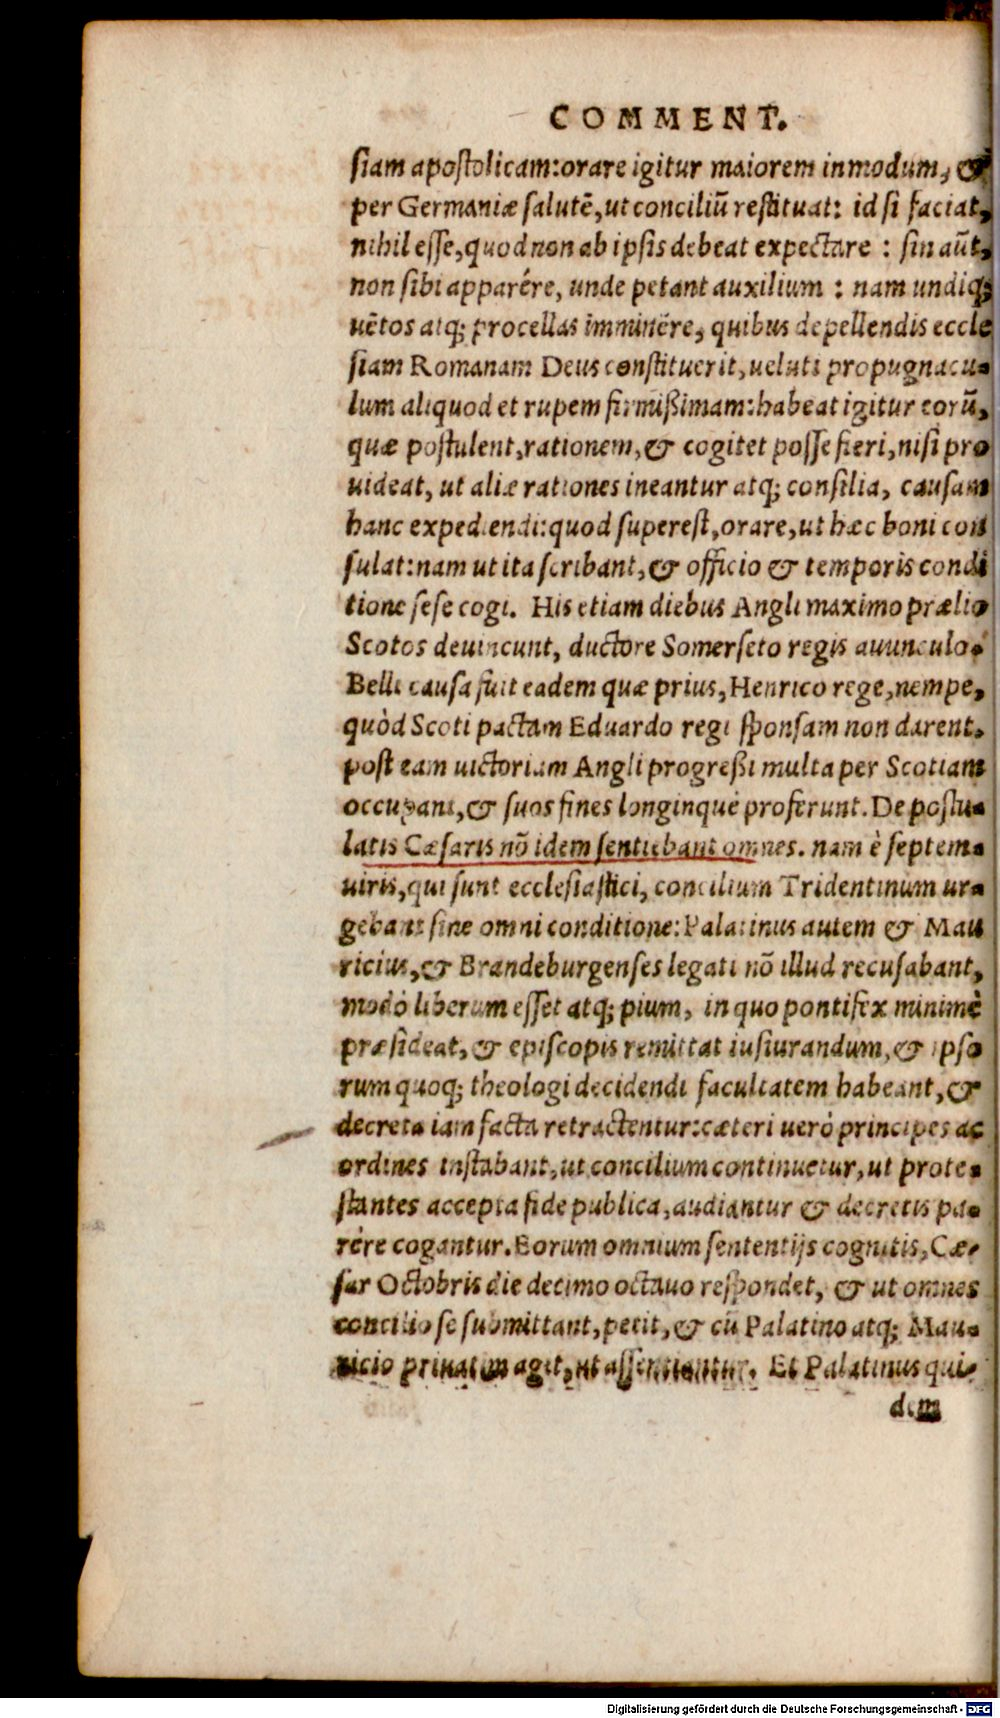 COMMENT.
siam apostolicam: orare igitur maiorem in modum, &
per Germaniæ salutẽ, ut conciliũ restituat: id si faciat,
nihil esse, quod non ab ipsis debeat expectare : sin aũt,
non sibi apparére, unde petant auxilium : nam undiq;
uẽtos atq; procellas imminẽre, quibus depellendis eccle
siam Romanam Deus constituerit, ueluti propugnacu-
lum aliquod et rupem firmißimam: habeat igitur eorũ,
quæ postulent, rationem, & cogitet posse fieri, nisi pro
uideat, ut aliæ rationes ineantur atq; consilia, causam
hanc expediendi: quod superest, orare, ut hæc boni con
sulat: nam ut ita scribant, & officio & temporis condi
tione sese cogi. His etiam diebus Angli maximo prælio
Scotos deuincunt, ductore Somerseto regis auunculo.
Belli causa fuit eadem quæ prius, Henrico rege, nempe,
quòd Scoti pactam Eduardo regi sponsam non darent.
post eam uictoriam Angli progreßi multa per Scotiam
occupant, & suos fines longinquè proferunt. De postu-
latis Cæsaris nõ idem sentiebant omnes. nam è septem-
uiris, qui sunt ecclesiastici, concilium Tridentinum ur-
gebant sine omni conditione: Palatinus autem & Mau
ricius, & Brandeburgenses legati nõ illud recusabant,
modò liberum esset atq; pium, in quo pontifex minimè
præsideat, & episcopis remittat iusiurandum, & ipso
rum quoq; theologi decidendi facultatem habeant, &
decreta iam facta retractentur: cæteri uerò principes ac
ordines instabant, ut concilium continuetur, ut prote-
stantes accepta fide publica, audiantur & decretis pa-
rére cogantur. Eorum omnium sententijs cognitis, Cæ-
sar Octobris die decimo octauo respondet, & ut omnes
concilio se submittant, petit, & cũ Palatino atq; Mau-
ricio priuatim agit, ut assentiantur. Et Palatinus qui-
dem
Digitalisierung gefördert durch die Deutsche Forschungsgemeinschaft - DFG